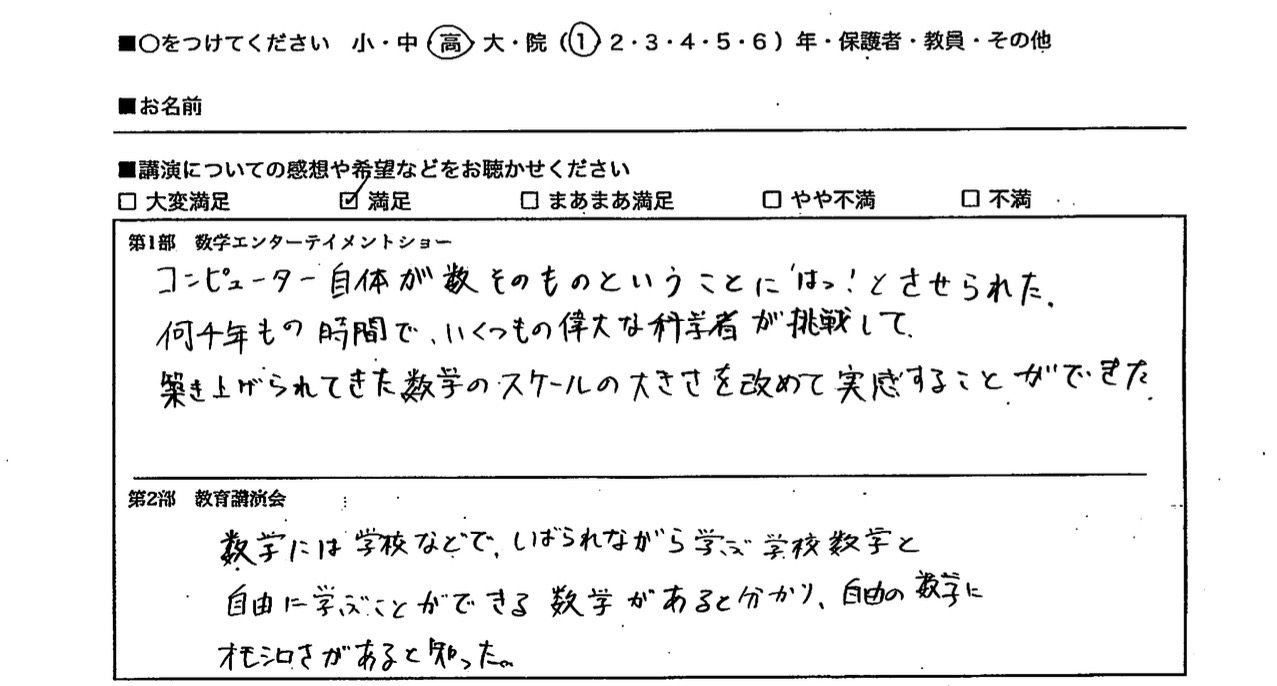 ■○をつけてください 小・中・高・大・院（1・2・3・4・5・6）年・保護者・教員・その他
■お名前
■講演についての感想や希望などをお聴かせください
□ 大変満足 ☑ 満足 □ まあまあ満足 □ やや不満 □ 不満
第1部 数学エンターテイメントショー
コンピューター自体が数そのものということに'はっ!とさせられた。
何千年もの時間で、いくつもの偉大な科学者が挑戦して
築き上げられてきた数学のスケールの大きさを改めて実感することができた。
第2部 教育講演会
数学には学校などで、しばられながら学ぶ学校数学と
自由に学ぶことができる数学があると分かり、自由の数学に
オモシロさがあると知った。